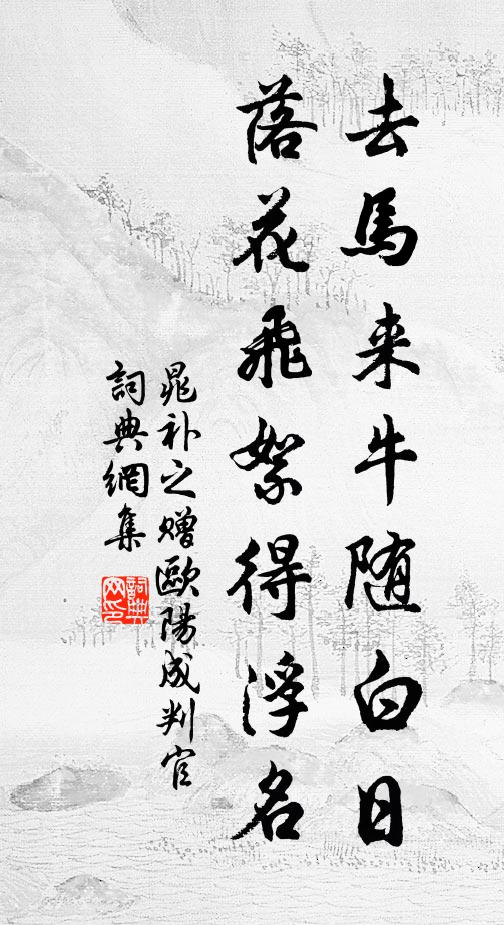 去馬来牛随白日
落花飛絮得浮名
晁补之赠歐陽成判官
詞典網集
詞典
网印